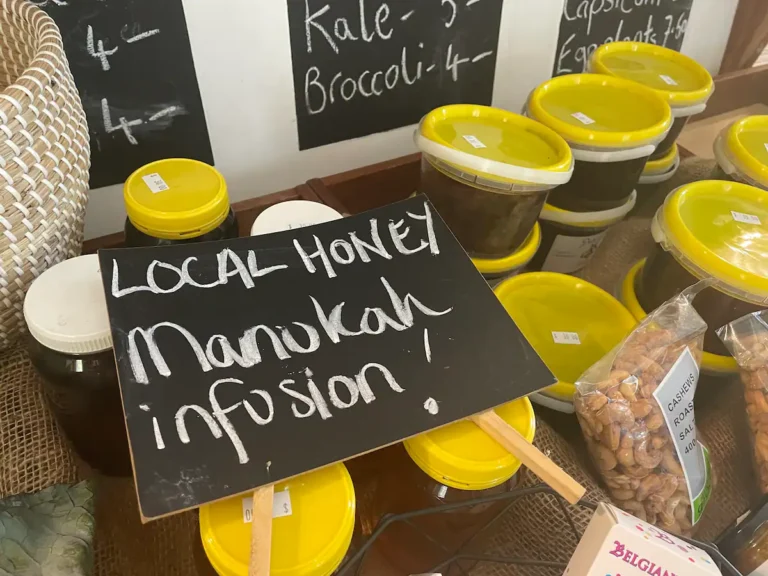 4-
4-
Kale - 3-
Broccoli - 4-
Capsicum
Eggplants 7.50
LOCAL HONEY
Manukah
infusion!
CASHEWS
ROAS
SAL
400
BELGIAN